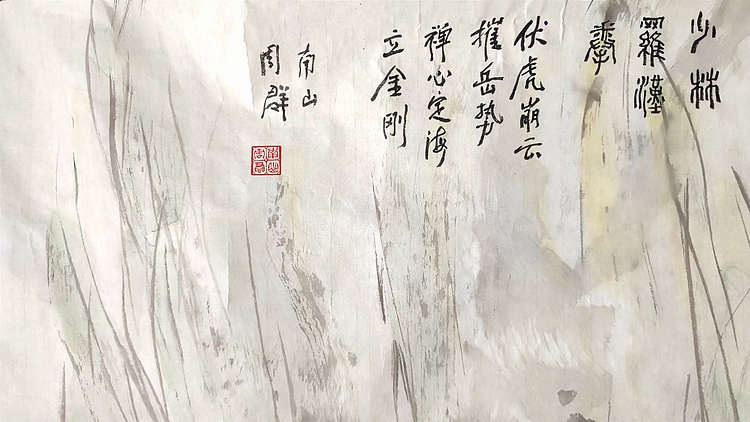 少林
羅漢
拳
伏虎崩云
摧岳势
禅心定海
立金刚
南山
周群